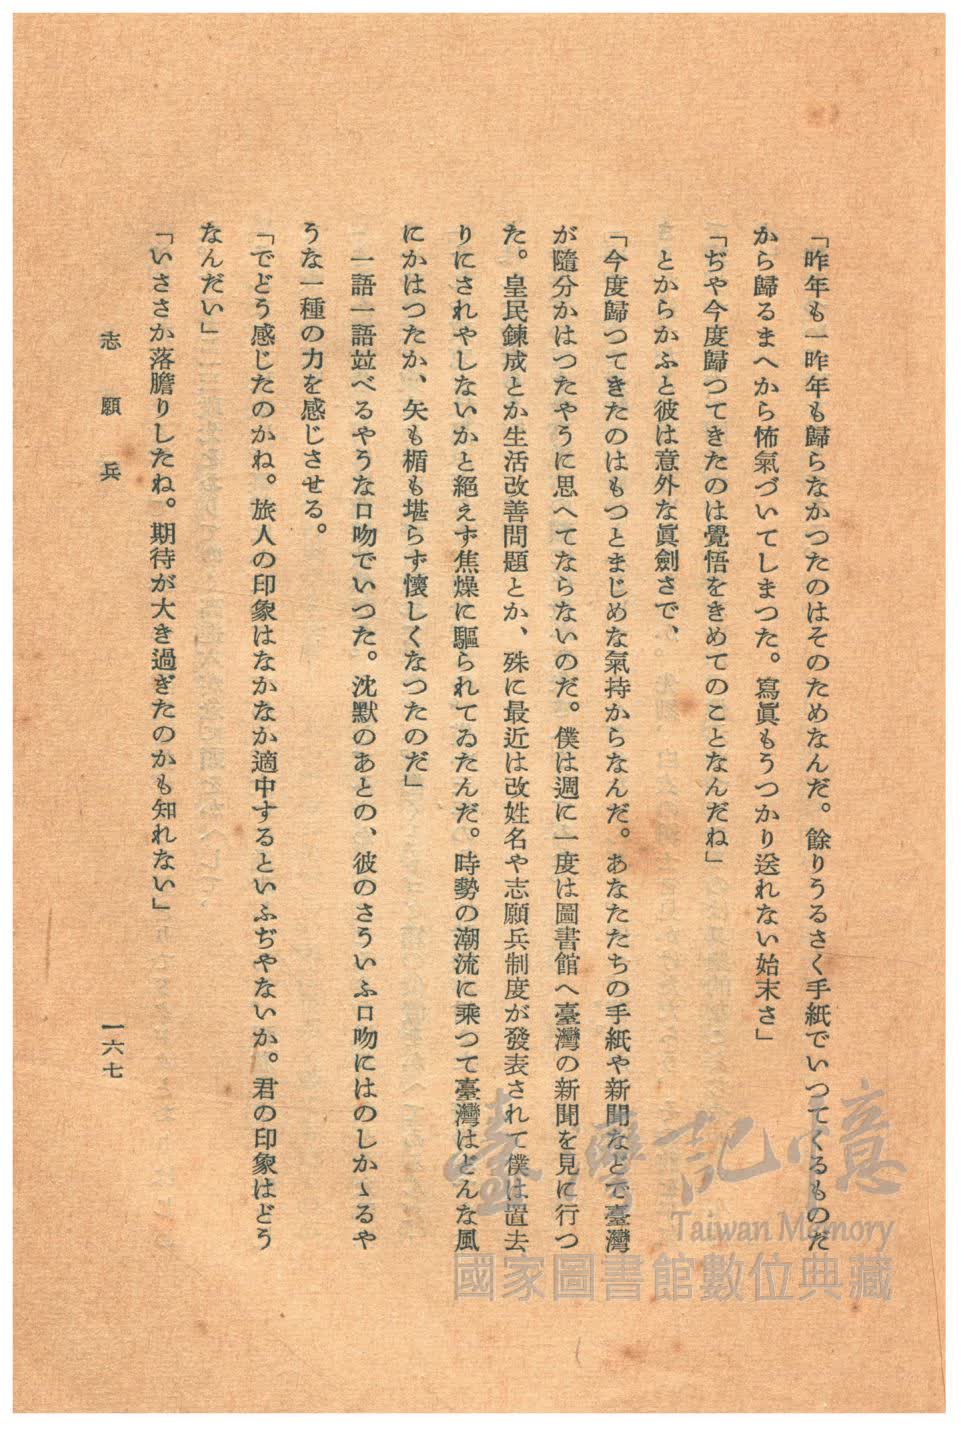 「昨年も一昨年も歸らなかつたのはそのためなんだ。餘りうるさく手紙でいつてくるものだ
から歸るまへから怖氣づいてしまつた。寫眞もうつかり送れない始末さ」
「ぢや今度歸つてきたのは覺悟をきめてのことなんだね」
さとからかふと彼は意外な眞劍さで、
「今度歸つてきたのはもつとまじめな氣持からなんだ。あなたたちの手紙や新聞などで臺灣
が隨分かはつたやうに思へてならないのだ。僕は週に一度は圖書館へ臺灣の新聞を見に行つ
た。皇民鍊成とか生活改善問題とか、殊に最近は改姓名や志願兵制度が發表されて僕は置去
りにされやしないかと絕えず焦燥に驅られてゐたんだ。時勢の潮流に乘つて臺灣はどんな風
にかはつたか、矢も楯も堪らず懷しくなつたのだ」
一語一語竝べるやうな口吻でいつた。沈默のあとの、彼のさういふ口吻にはのしかゝるや
うな一種の力を感じさせる。
「でどう感じたのかね。旅人の印象はなかなか適中するといふぢやないか。君の印象はどう
なんだい」
「いささか落膽りしたね。期待が大き過ぎたのかも知れない」
志願兵
一六七
臺灣記憶
Taiwan Memory
國家圖書館數位典藏